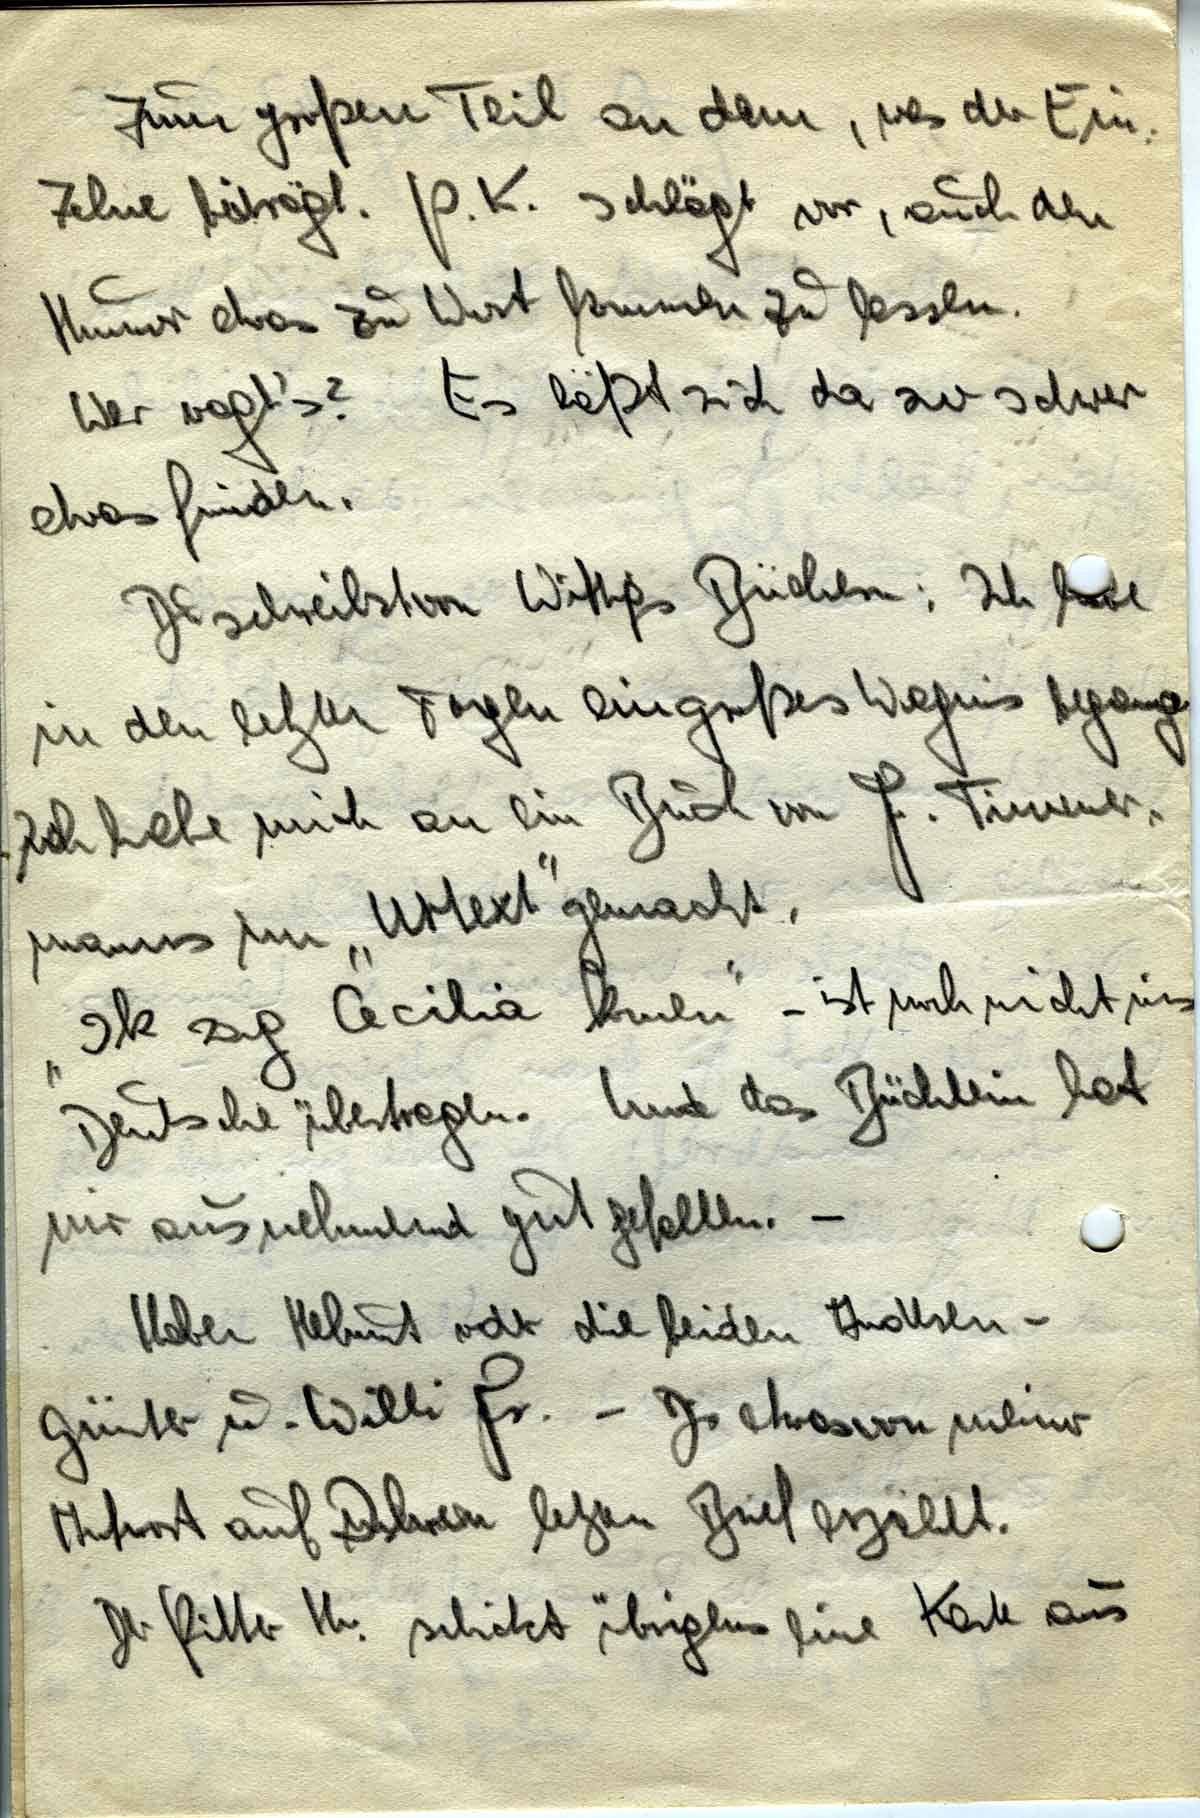 zum großen Teil an dem, was der Ein-
zelne beiträgt. P. K. schlägt vor, auch den
Humor etwas zu Wort kommen zu lassen.
Wer wagt's? Es läßt sich da nur schwer
etwas finden.
Du schreibst von Wittigs Büchern; Ich habe
in den letzten Tagen ein großes Wagnis begang.
Ich habe mich an ein Buch von F. Timmer-
manns im „Urtext" gemacht.
„Ik zag Cecilia komen" - ist noch nicht ins
Deutsche übertragen. Und das Büchlein hat
mir ausnehmend gut gefallen. -
Haben Helmut oder die beiden Anderen -
Günter u. Willi - Dir etwas von meiner
Antwort auf letzten Brief erzählt.
Der schickt übrigens eine Karte aus